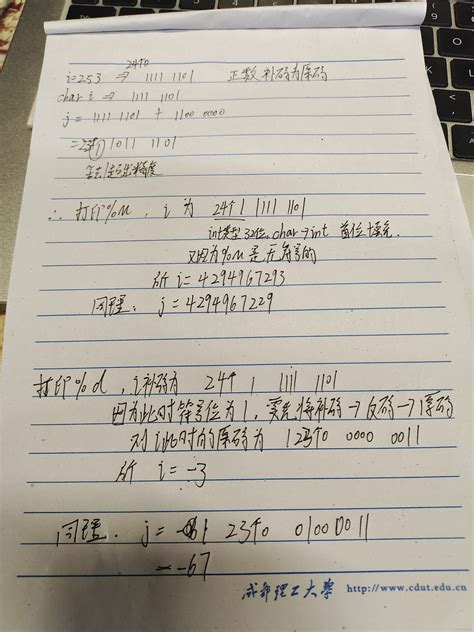 24个0
i=253 ⇒ 1111 1101 正数补码为原码
char i ⇒ 1111 1101
j = 1111 1101 + 1100 0000
=24个① 1011 1101
丢去1超出精度
∴ 打印%u, i 为 24个1 1111 1101
int类型32位, char→int 首位填充
又因为%u是无符号的
所 i=4294967293
同理: j=4294967229
打印%d, i补码为 24个1 1111 1101
因为此时符号位为1, 要将补码→反码→原码
则i此时的原码为 1 23个0 0000 0011
所 i=-3
同理. j = 1 23个0 0100 0011
= -67
成都理工大学 http://www.cdut.edu.cn